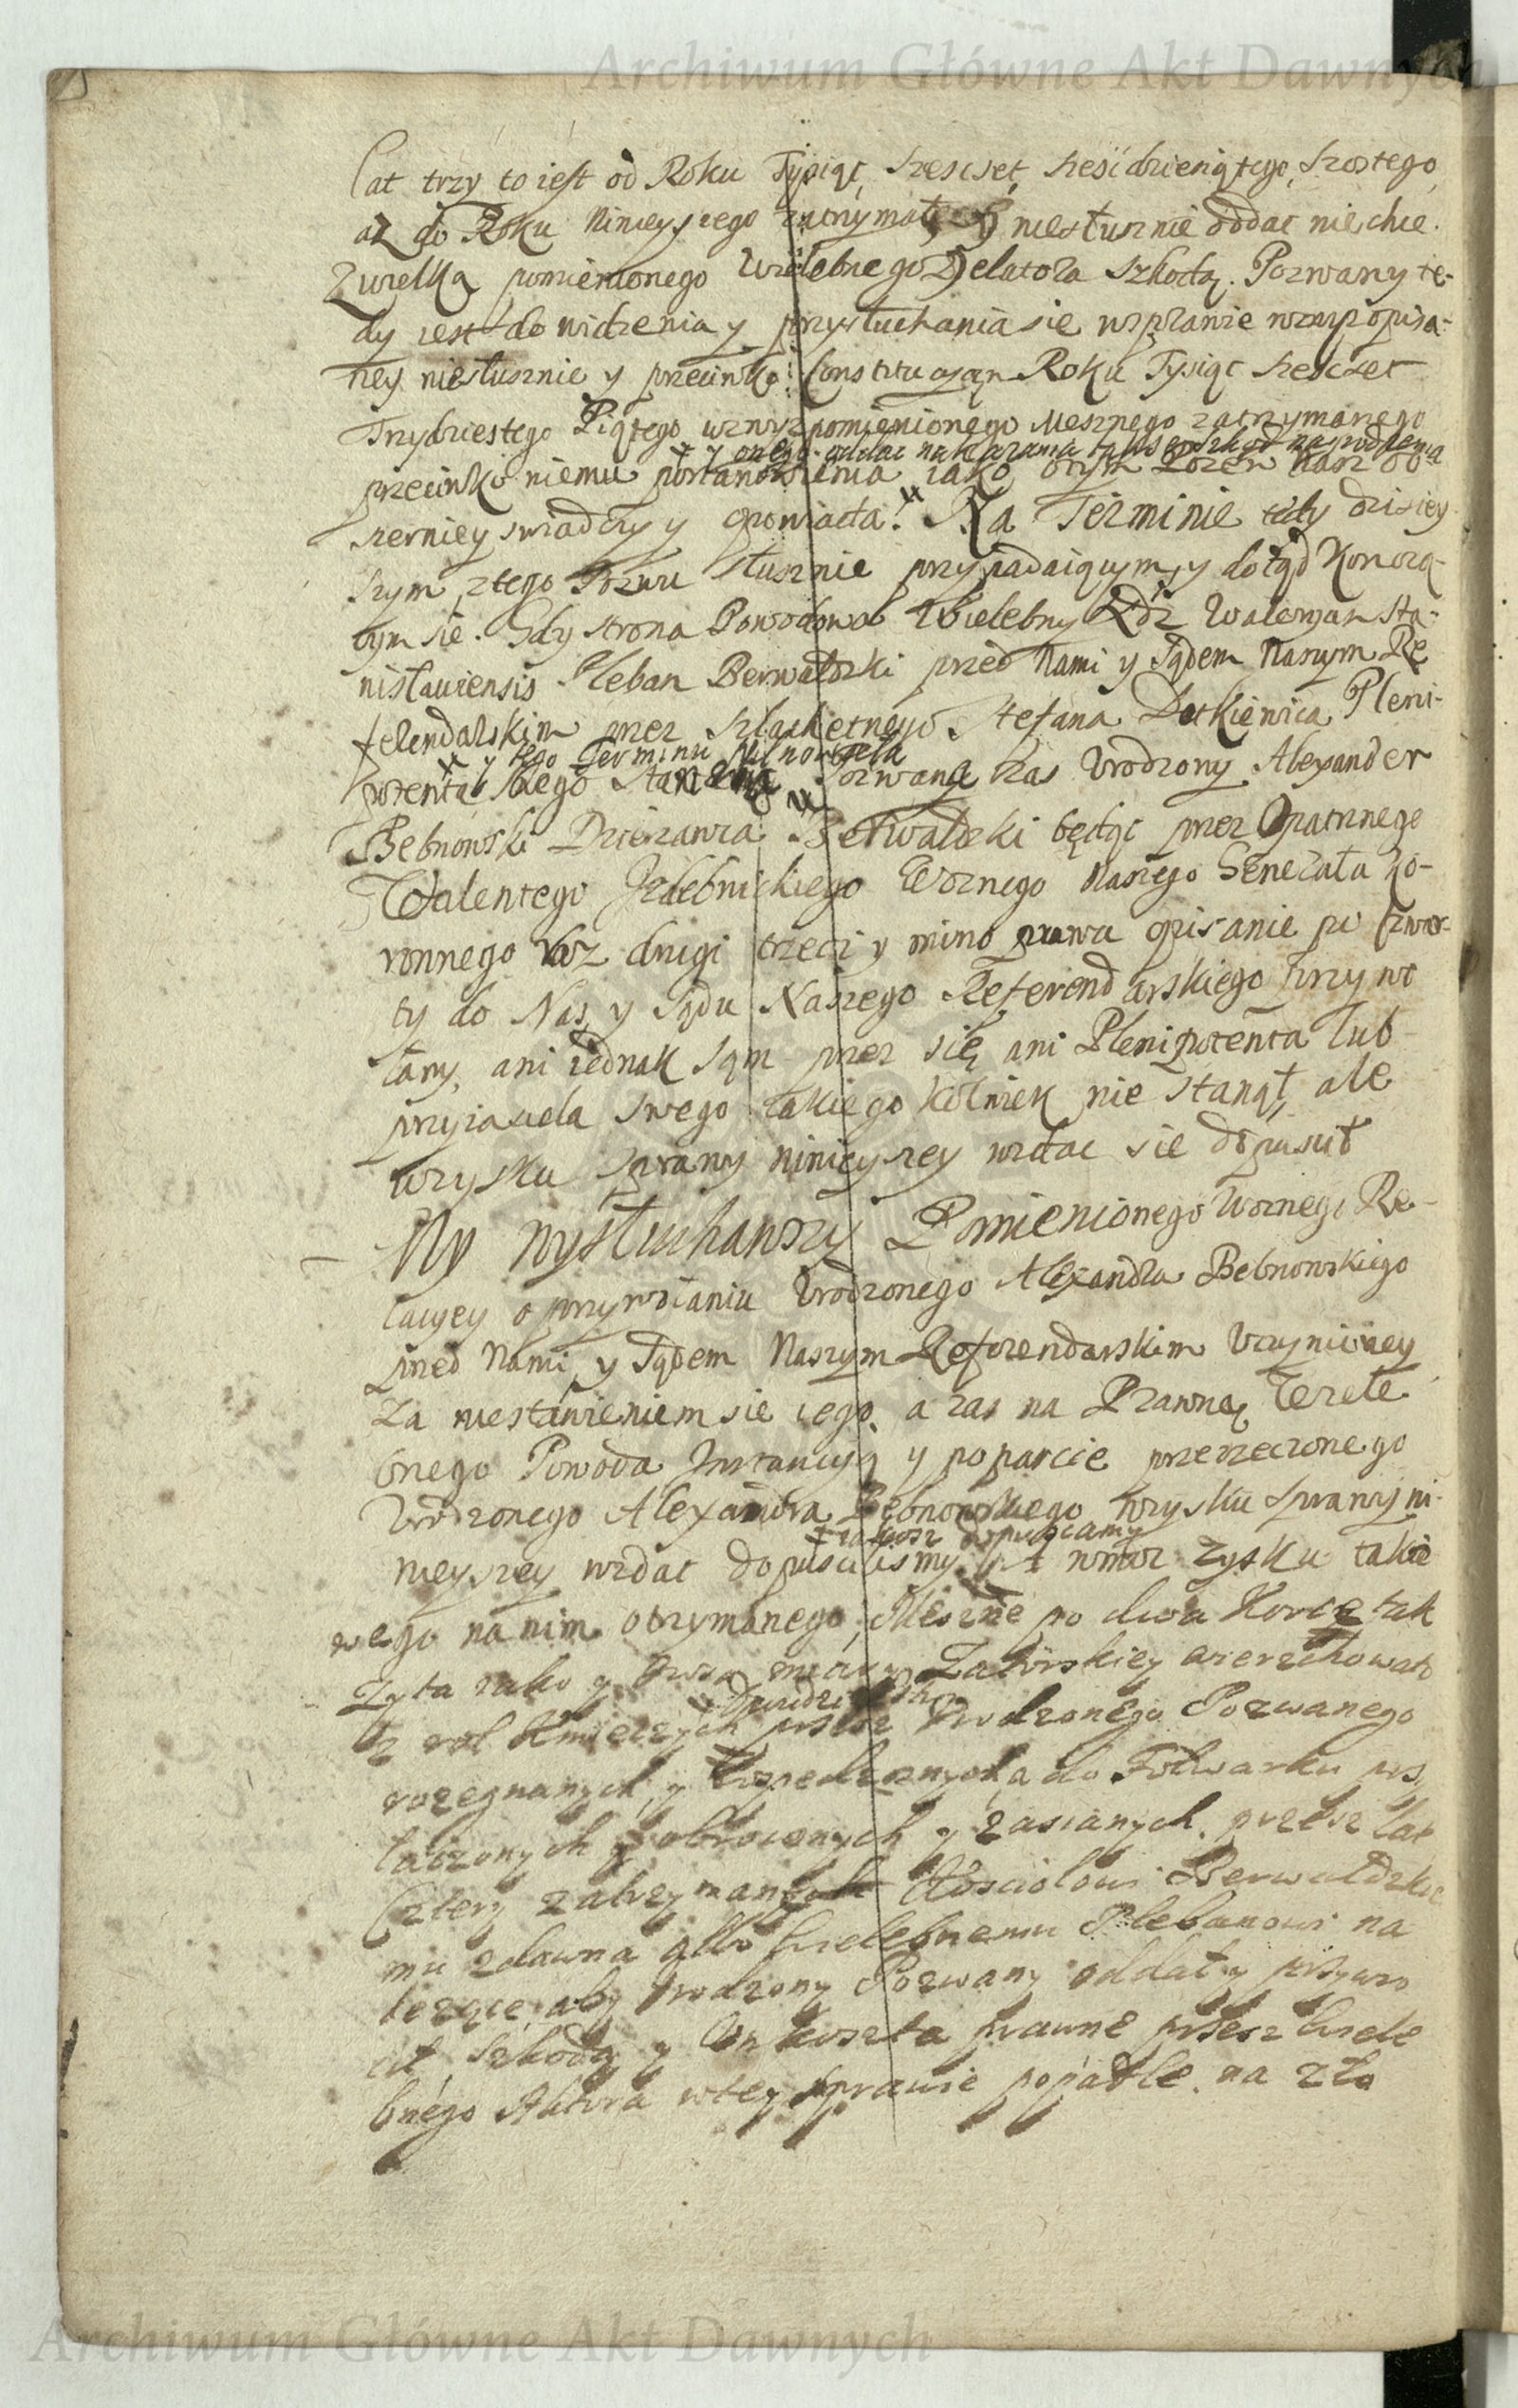 Archiwum Główne Akt Dawnych
Lat trzy to iest od Roku Tysiąc szescset sześcdziesiątego szostego
az do Roku Ninieyszego zatrzymał, y niesłusznie oddac niechce.
Zwielką pomienionego Wielebnego Delatora szkodą. Pozwany te-
dy iest do widzenia y przysłuchania sie wsprawie wzwyz opisa-
ney niesłusznie y przeciwko Constitucyey Roku Tysiąc szescset
Trzydziestego Piątego wzwyz pomienionego Mesznego zatrzymanego
y onego oddac nakazania takze szkod nagrodzenia
przeciwko niemu postanowienia iako otym Pozew Nasz do-
szerniey swiadczy y opowiada. Na Terminie tedy dzisiey-
szym ztego Pozwu słusznie przypadaiącym, y dotąd Konczą-
cym sie. Gdy strona Powodowa Wielebny Xdz Waleryan Sta-
nislawiensis Pleban Berwaldzki przed Nami y Sądem Naszym Re
ferendarskim przez szlachetnego Stefana Pleni-
y tego Terminu pilnowała
potenta swego Pozwany zas Urodzony Alexander
Bebnowski Dzierzawca Berwaldzki będąc przez Opatrznego
Walentego Woznego Naszego Generała Ko-
ronnego raz drugi trzeci y mimo prawa opisanie po czwar-
ty do Nas y Sądu Naszego Referendarskiego przywo
łany, ani iednak sąm przez się ani Plenipotenta lub
przyiaciela swego iakiego kolwiek nie stanął, ale
wzysku sprawy ninieyszey wzdac sie dopuscił
My wysłuchawszy Pomienionego Woznego Re-
lacyey o przywołaniu Urodzonego Alexandra Bebnowskiego
przed Nami y Sądem Naszym Referendarskim Uczynioney
Za niestawieniem sie iego, a zas na Prawną Wiele
bnego Powoda Instancyą y poparcie przerzeczonego
Urodzonego Alexandra Bębnowskiego wzysku sprawy ni-
iakosz dopusczamy
nieyszey wzdac dopuscilismy A wmoc zysku takie
wego na nim otrzymanego, Meszne po dwa Korce tak
Zyta iako y Owsa miary Zatorskiey wierzchowato
z rol Kmiecych przez Urodzonego Pozwanego
rozegnanych, y a do Folwarku
łączonych y obroconych y zasianych, przesz lat
Cztery zatrzymanych Kosciołowi Berwaldzkie
mu zdawna albo Wielebnemu Plebanowi na
lezące, aby Urodzony Pozwany oddał y przywro
cił, szkody y Unkoszta prawne przesz Wiele
bnego Aktora wtey sprawie popadłe, na zło
Archiwum Główne Akt Dawnych